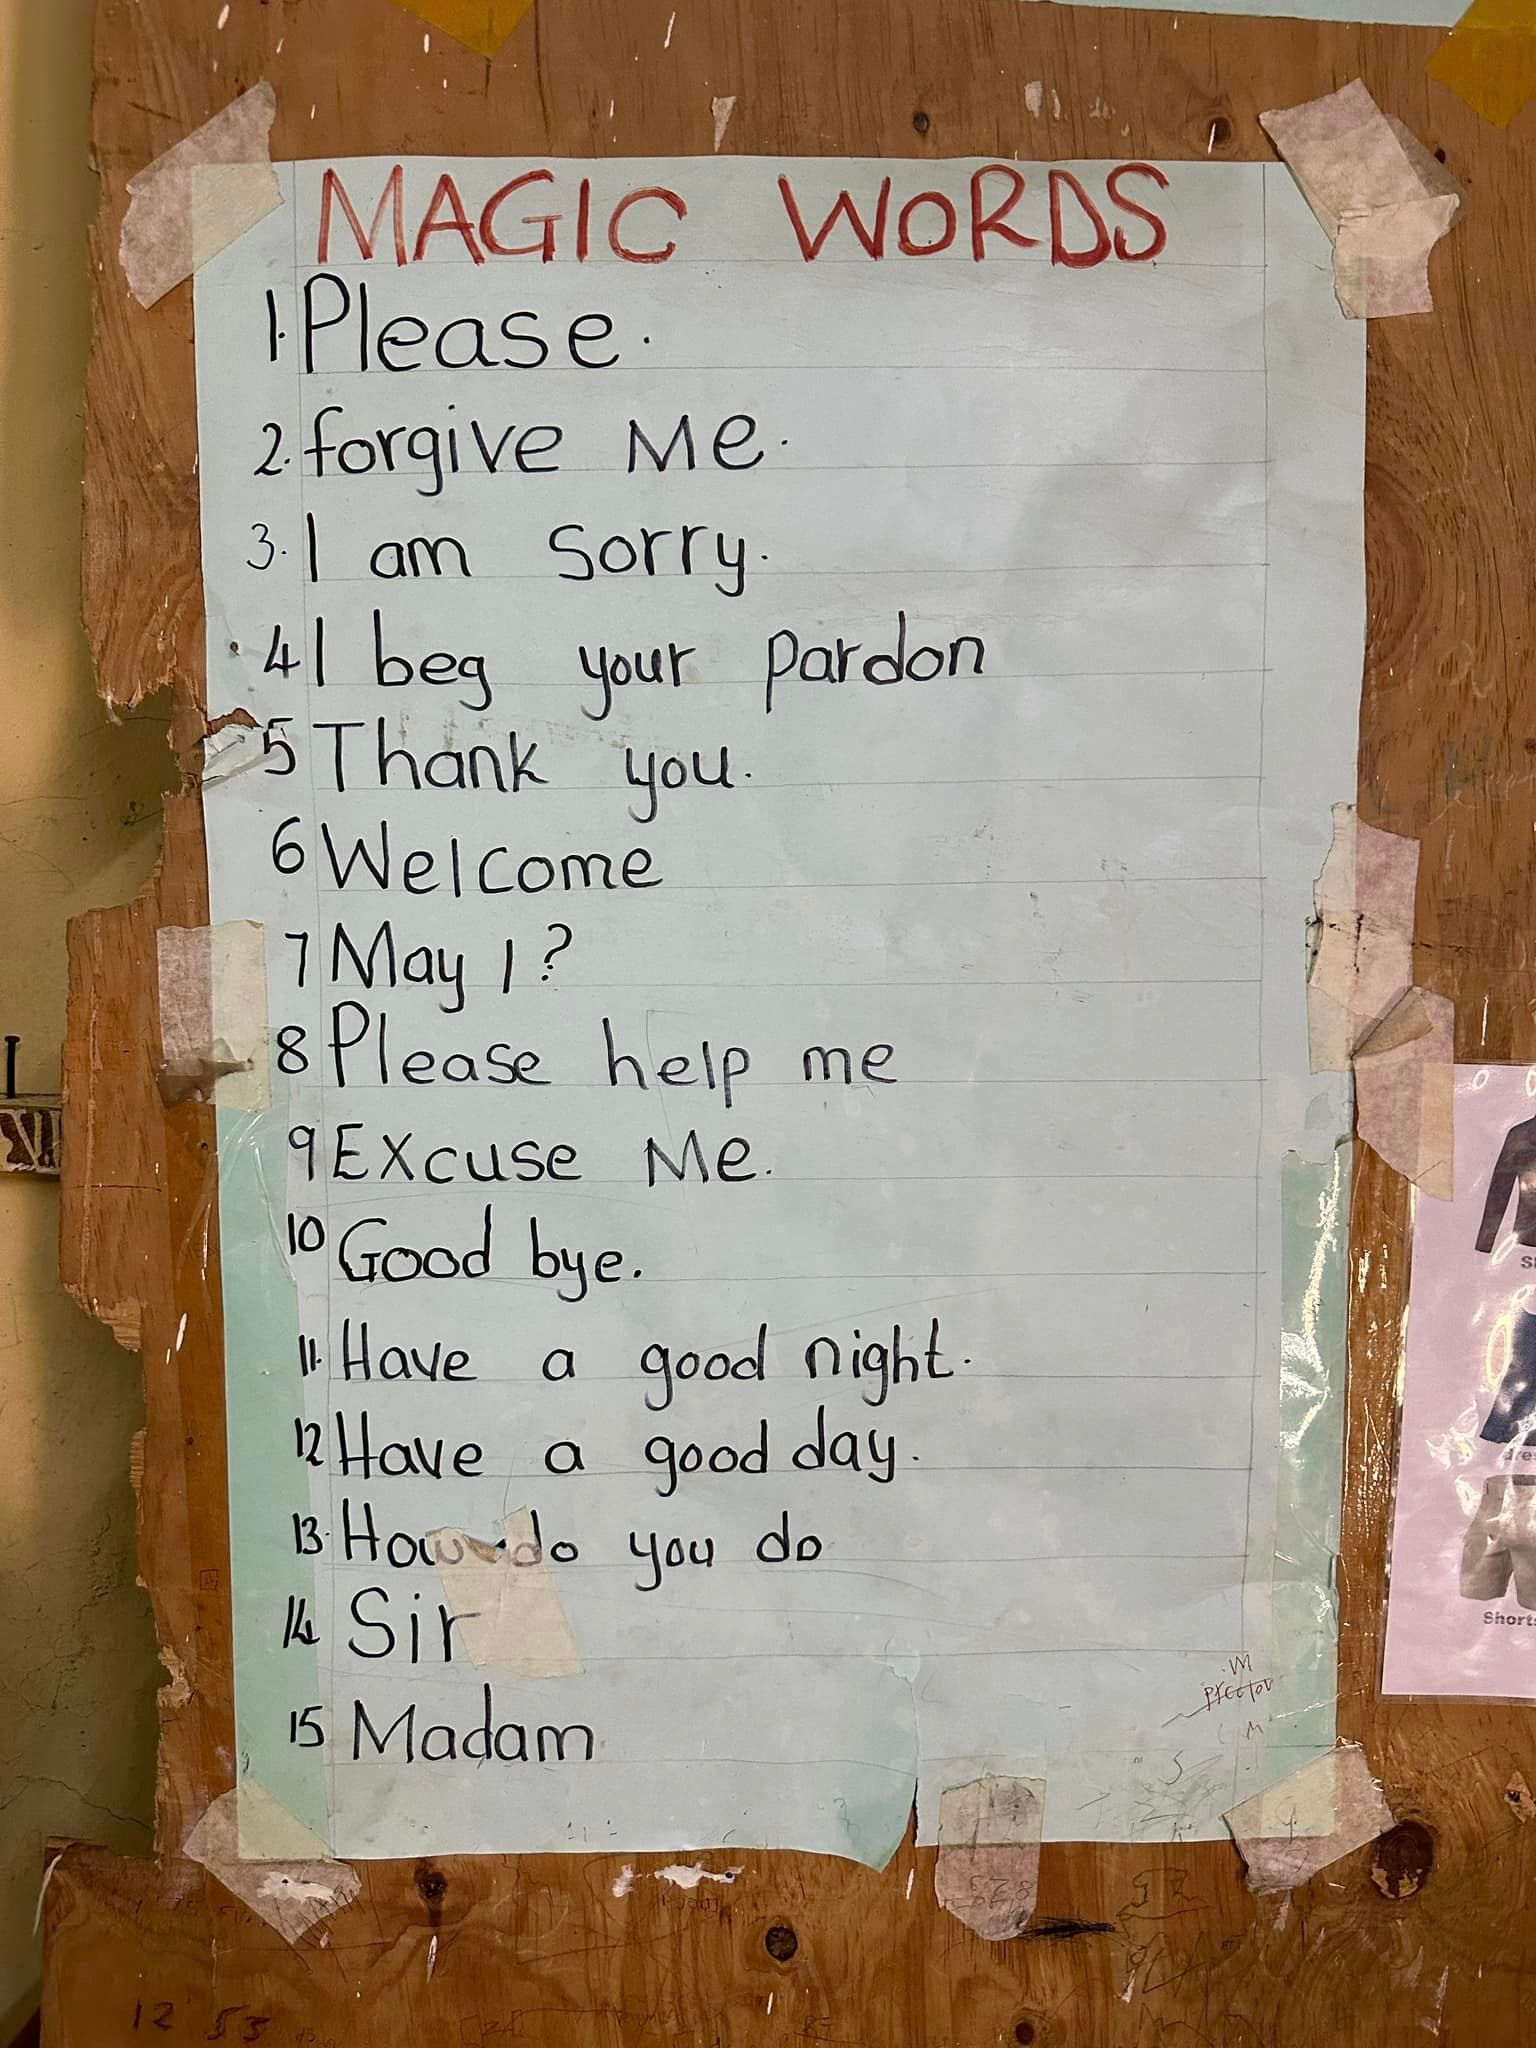 MAGIC WORDS
1. Please.
2. forgive Me.
3. I am sorry.
4 I beg your pardon
5 Thank you.
6 Welcome
7 May I ?
8 Please help me
9 Excuse Me.
10 Good bye.
11. Have a good night.
12 Have a good day.
13. How do you do
14 Sir
15 Madam
Shorts
12 53